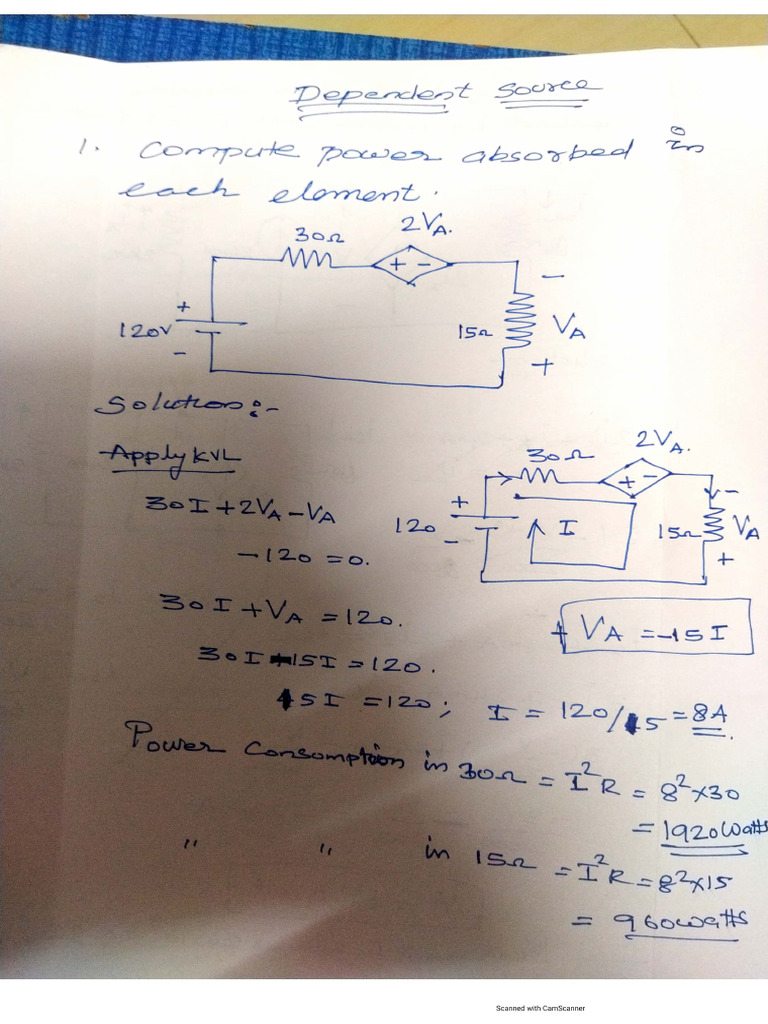 Dependent Source
1. Compute power absorbed in
each element.
30Ω
2VA.
+ -
-
+
120V
-
15Ω
VA
+
Solution:-
Apply KVL
30I+2VA-VA
-120=0.
30I+VA=120.
30I+15I=120.
45I=120; I=120/15=8A.
30Ω
2VA.
+ -
+
120
-
I
-
15Ω
VA
+
+ VA=-15I
Power Consumption in 30Ω=I²R=8²×30
=1920Watts
" " in 15Ω=I²R=8²×15
=960watts
Scanned with CamScanner